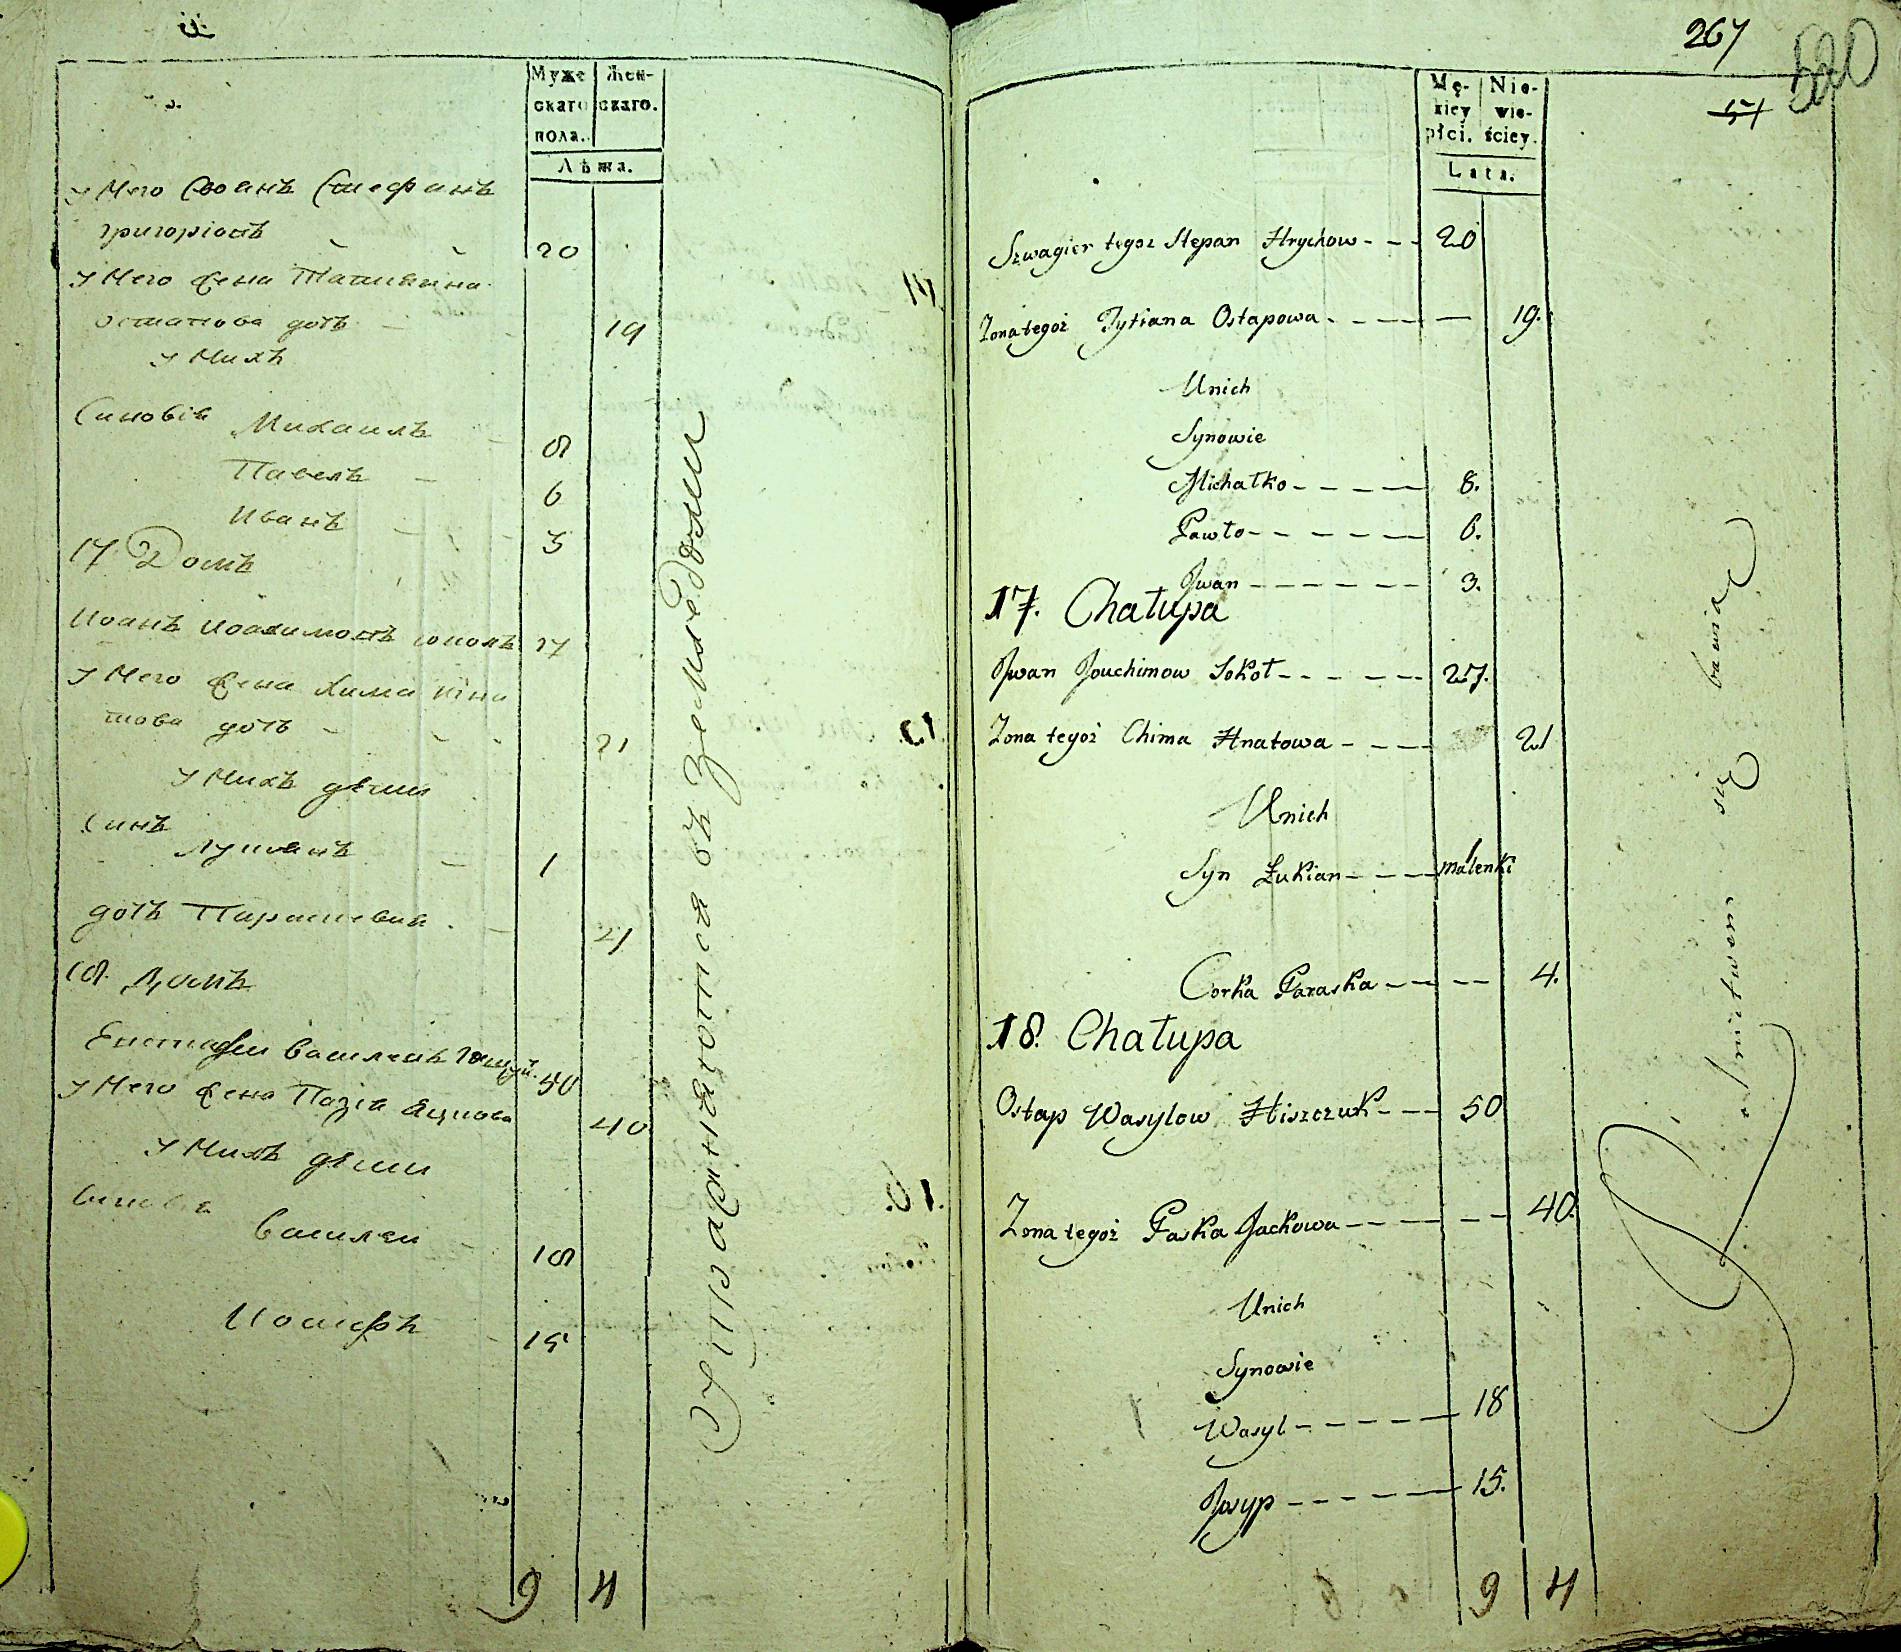 Муже Жен-
скаго скаго.
пола.
Лѣта.
у Него Своакъ Стефанъ
григоріовъ 20
у Него жена Татиянна
остапова дотъ 19
у Нихъ
Синовія Михаилъ 8
Павелъ 6
Иванъ 3
17 Домъ
Иоанъ Иоахимовъ соколъ 27
у Него жена Хима игна
това дотъ 21
у Нихъ дѣти
Синъ
Лукианъ 1
дотъ Параскевия 4
18. Домъ
Евстафи Василевъ 50
у Него жена Пазія Яцкова 40
у Нихъ дѣти
Синовія
Василеи 18
Иосифъ 15
9 4
упражняютса въ Земледѣлии
267
520
57
Mę- Nie-
zkiey wie-
płci. ściey.
Lata.
Szwagier tegoż Stepan Hrychow - - - 20
Zona tegoż Tytiana Ostapowa - - - - - 19.
Unich
Synowie
Michałko - - - - 8.
Pawło - - - - - - 6.
Jwan - - - - - - 3.
17. Chałupa
Jwan Jouchimow Sokoł - - - - - 27.
Zona tegoż Chima Hnatowa - - - - 21
Unich
Syn Łukian - - - - malenki
Corka Paraska - - - - 4.
18. Chałupa
Ostap Wasylow Hiszczuk - - - 50
Zona tegoż Paska Jackowa - - - - - - 40.
Unich
Synowie
Wasyl - - - - - - 18
Josyp - - - - - - 15.
9 4
rolnictwem się bawią